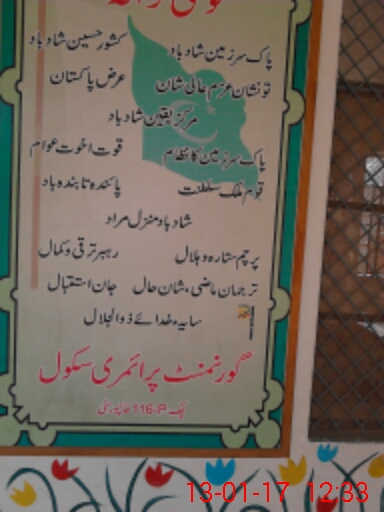 قومی ترانہ
پاک سرزمین شاد باد کشور حسین شاد باد
تو نشان عزم عالی شان عرض پاکستان
مرکز یقین شاد باد
پاک سرزمین کا نظام قوت اخوت عوام
قوم ملک سلطنت پائندہ تابندہ باد
شاد باد منزل مراد
پرچم ستارہ و ہلال رہبر ترقی و کمال
ترجمان ماضی، شان حال جان استقبال
سایہ خدائے ذوالجلال
گورنمنٹ پرائمری سکول
چک 116-P
13-01-17 12:33